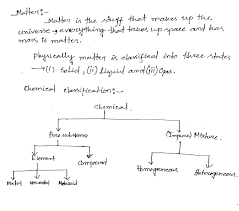 Matter:-
Matter is the stuff that makes up the
universe → everything that takes up space and has
mass is matter.
Physically matter is classified into three states
→ (i) Solid, (ii) Liquid and (iii) Gas.
Chemical classification:-
Chemical
Pure substance
(Impure) Mixture
Element
Compound
Homogeneous
Heterogeneous
Metal
Nonmetal
Metalloid